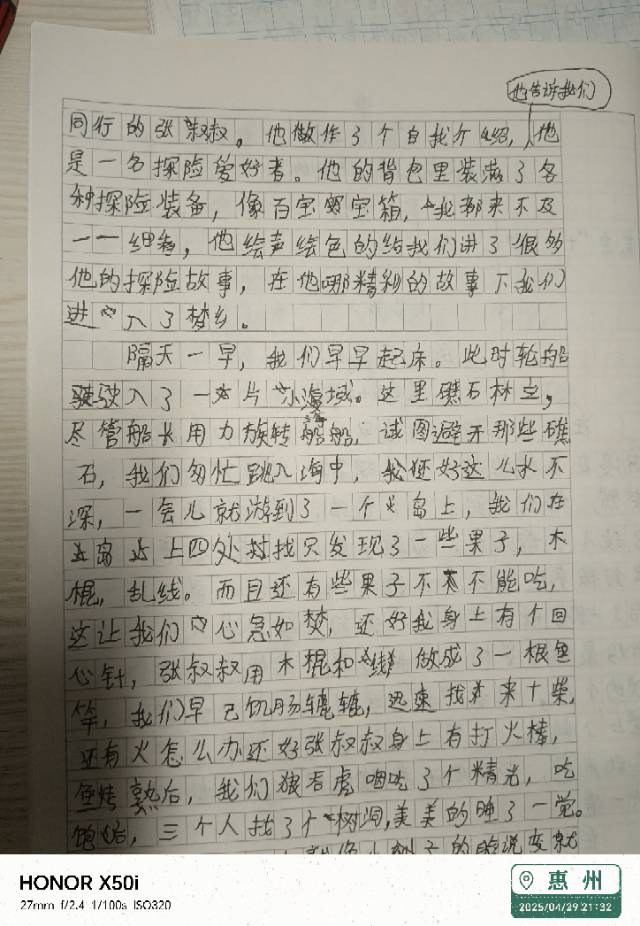 他告诉我们
同行的张叔叔。他做作了个自我介绍,他
是一名探险爱好者。他的背包里装满了各
种探险装备,像百宝宝箱,我都来不及
一一细看,他绘声绘色的给我们讲了很多
他的探险故事,在他哪精彩的故事下我们
进入了梦乡。
隔天一早,我们早早起床。此时轮船
驶入了一片小海域。这里礁石林立,
尽管船长用力旋转船,试图避开那些礁
石,我们匆忙跳入海中,我还好这儿水不
深,一会儿就游到了一个岛上,我们在
岛上四处寻找只发现了一些果子,木
棍,乱线。而且还有些果子不不能吃,
这让我们心急如焚,还好我身上有个回
心针,张叔叔用木棍和线做成了一根鱼
竿,我们早已饥肠辘辘,迅速找来干柴,
还有火怎么办还好张叔叔身上有打火棒,
鱼烤熟后,我们狼吞虎咽吃了个精光,吃
饱后,三个人找了个树洞,美美的睡了一觉。
的脸说变就
HONOR X50i
27mm f/2.4 1/100s ISO320
惠州
2025/04/29 21:32